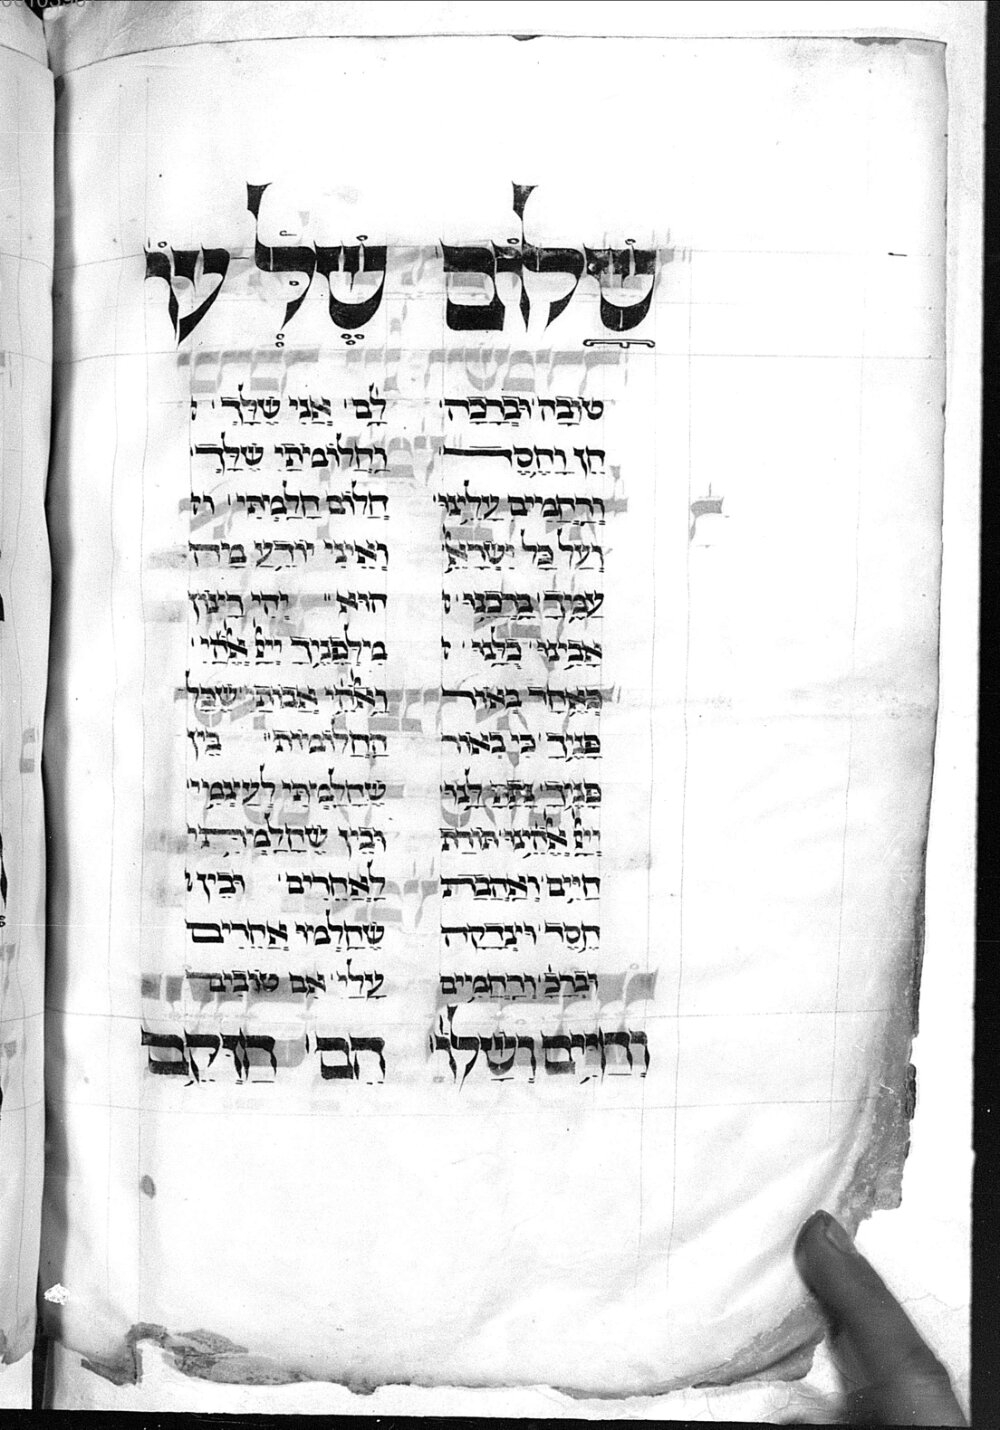 שָׁלוֹם
טוֹבָה וּבְרָכָה
חֵן וָחֶסֶד
וְרַחֲמִים עָלֵינוּ
וְעַל כָּל יִשְׂרָאֵ
עַמֶּךָ בָּרְכֵנוּ
אָבִינוּ כֻּלָּנוּ
כְּאֶחָד בְּאוֹר
פָּנֶיךָ כִּי בְאוֹר
פָּנֶיךָ נָתַתָּ לָּנוּ
יְיָ אֱלֹהֵינוּ תּוֹרַת
חַיִּים וְאַהֲבַת
חֶסֶד וּצְדָקָה
וּבְרָכָ וְרַחֲמִים
וְחַיִּים וְשָׁלוֹ
שֶׁל עוֹ
לָם אֲנִי שֶׁלָּךְ
וַחֲלוֹמוֹתַי שֶׁלָּךְ
חֲלוֹם חָלַמְתִּי
וְאֵינִי יוֹדֵעַ מַה
הוּא יְהִי רָצוֹן
מִילְּפָנֶיךָ יְיָ אֱלֹהַי
וֵאלֹהֵי אֲבוֹתַי שֶׁכָּל
הַחֲלוֹמוֹת בֵּין
שֶׁחָלַמְתִּי לְעַצְמִי
וּבֵין שֶׁחָלַמְתִּי
לַאֲחֵרִים וּבֵין
שֶׁחָלְמוּ אֲחֵרִים
עָלַי אִם טוֹבִים
הֵם חַזְּקֵם